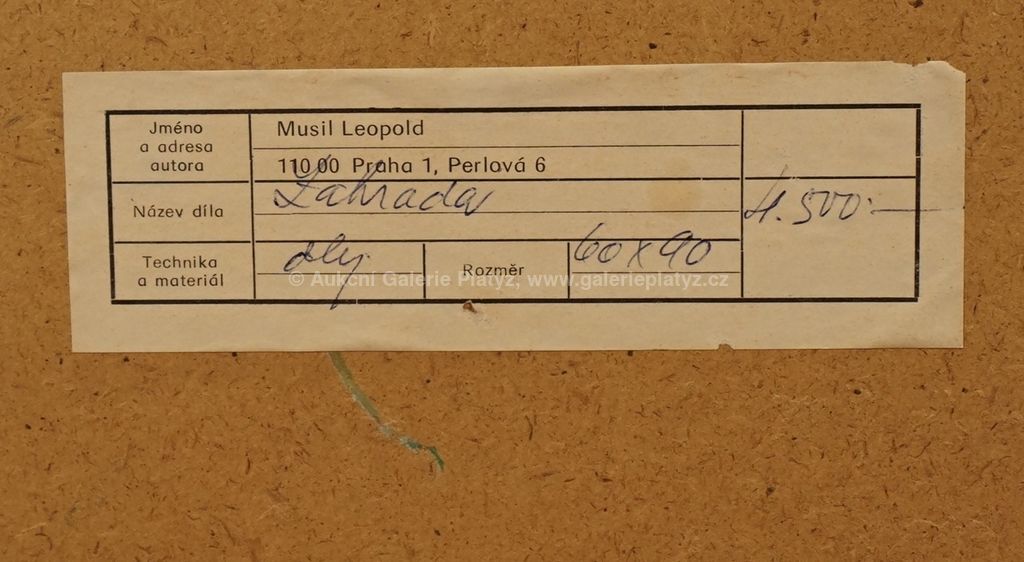 Jméno
a adresa
autora
Musil Leopold
110 00 Praha 1, Perlová 6
Název díla
Zahrada
4.500.—
Technika
a materiál
olej
Rozměr
60 x 90
© Aukční Galerie Platýz, www.galerieplatyz.cz